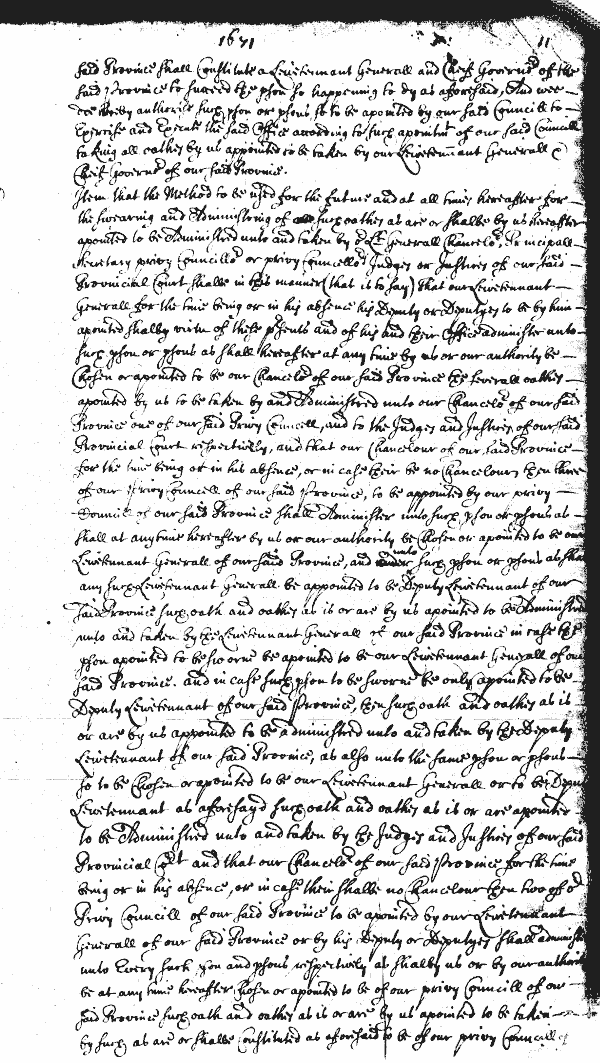 1671 11
said Province shall Constitute a Leivetennant Generall and Cheif Governor of the
said Province to succeed the pson so happening to dy as aforesaid, And wee
doe hereby authorise such pson or psons so to be apointed by our said Councill to
Exercise and Execute the said Office according to such apointmt of our said Councill
taking all oathes by us appointed to be taken by our Leivetennant Generall &
Cheif Governor of our said Province.
Item that the Method to be used for the future and at all times hereafter for
the swearing and Administring of such oathes as are or shalbe by us hereafter
apointed to be Administred unto and taken by Generall Chancelor, Principall
Secretary privy Councillor or privy Councellors Judges or Justices of our said
Provincial Court shalbe in this manner (that is to say) that our Leivetennant
Generall for the time being or in his absence his Deputy or Deputyes to be by him
apointed shalby vertu of these psents and of his and their Office administer unto
such pson or psons as shall hereafter at any time by us or our authority be
Chosen or apointed to be our Chancelor of our said Province the severall oathes
apointed by us to be taken by and Administred unto our Chancelor of our said
Province one of our said Privy Councill, and to the Judges and Justices of our said
Provincial Court respectively, and that our Chancelour of our said Province
for the time being or in his absence, or in case their be no Chancelour then three
of our Privy Councill of our said Province, to be appointed by our privy
Councill of our said Province shall Administer unto such pson or psons as
shall at any time hereafter by us or our authority be Chosen or apointed to be our
Leivetennant Generall of our said Province, and unto such pson or psons as shall
any such Leivetennant Generall be appointed to be Deputy Leivetennant of our
said Province such oath and oathes as is or are by us apointed to be Administred
unto and taken by the Leivetennant Generall of our said Province in case the
pson apointed to be sworne be apointed to be our Leivetennant Generall of our
said Province. and in case such pson to be sworne be only apointed to be
Deputy Leivetennant of our said Province, then such oath and oathes as is
or are by us appointed to be administred unto and taken by the Deputy
Leivetennant of our said Province, as also unto the same pson or psons
so to be Chosen or apointed to be our Leivetennant Generall or to be Deputy
Leivetennant as aforesayd such oath and oathes as is or are apointed
to be Administred unto and taken by the Judges and Justices of our said
Provincial Cort and that our Chancelor of our said Province for the time
being or in his absence, or in case their shalbe no Chancelour then two of or
Privy Councill of our said Province to be apointed by our Leivetennant
Generall of our said Province or by his Deputy or Deputyes shall administer
unto Every such pson and psons respectively as shalby us or by our authority
be at any time hereafter Chosen or apointed to be of our privy Councill of our
said Province such oath and oathes as is or are by us apointed to be taken
by such as are or shalbe Constituted as aforesaid to be of our privy Councill of